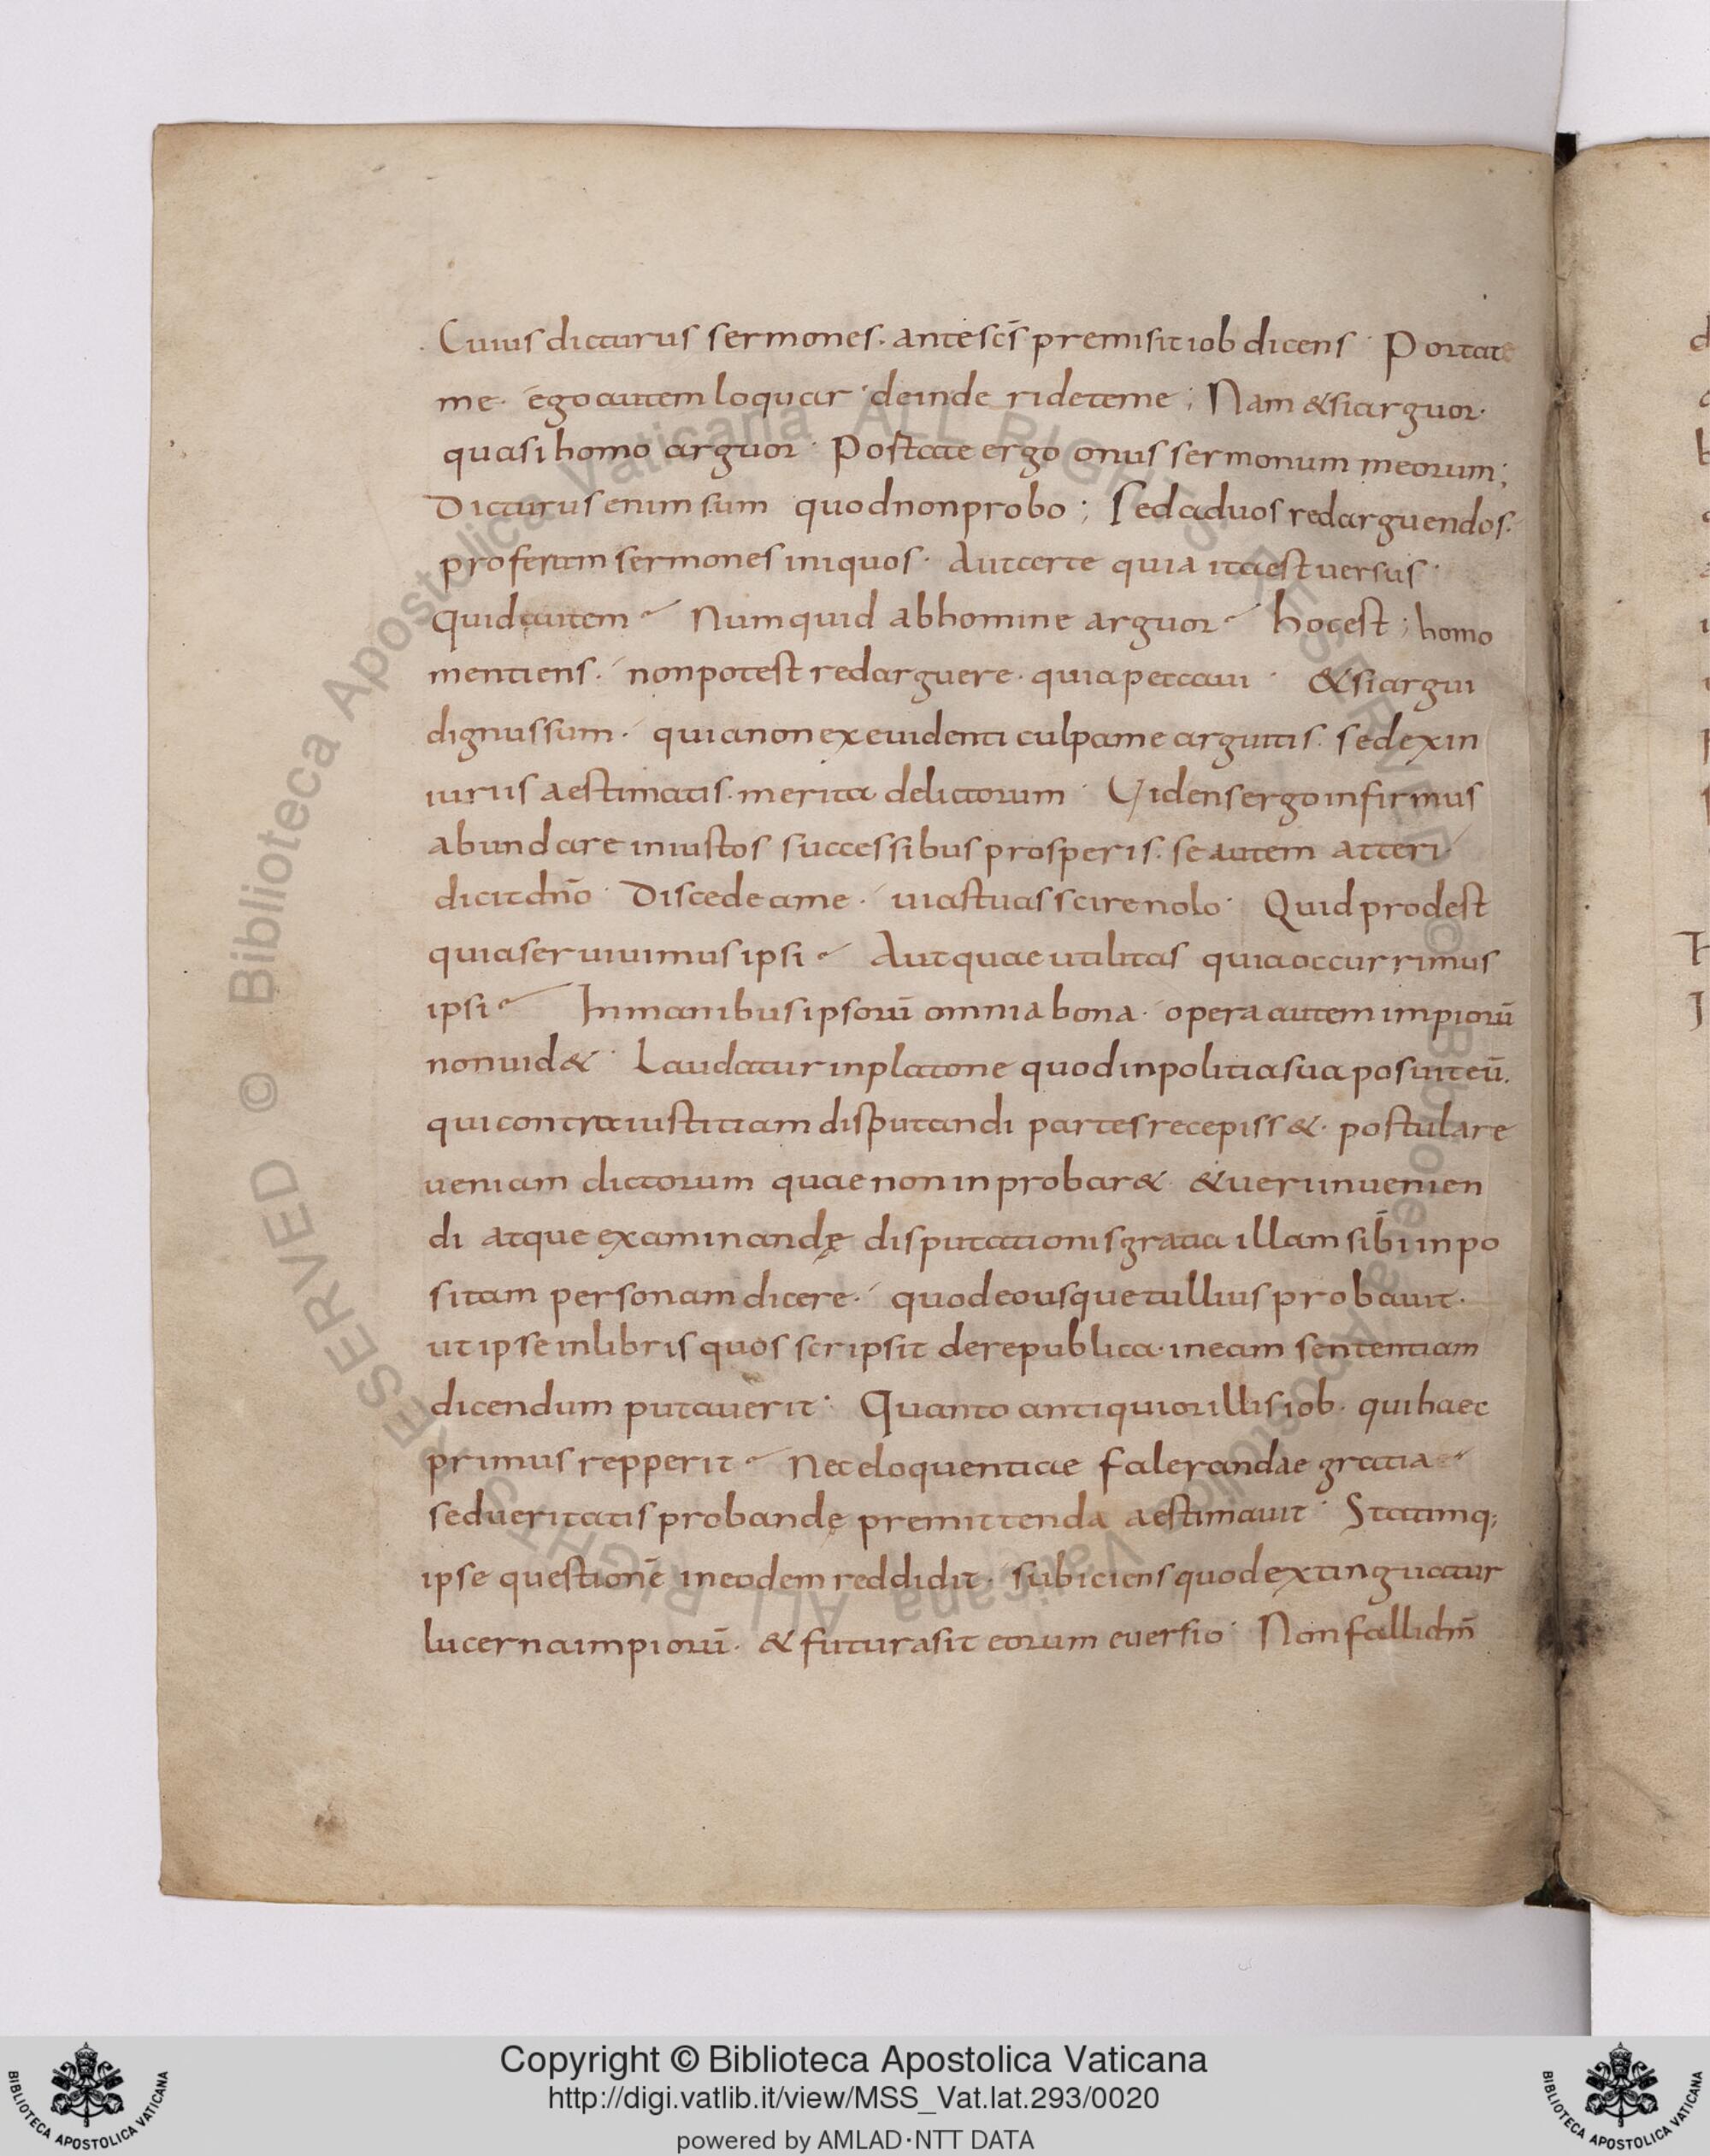 Cuius dicturus sermones. ante sc̄s premisit iob dicens · Portate
me · ego autem loquar · deinde ridete me ; Nam & si arguor ·
quasi homo arguor · Postate ergo onus sermonum meorum ;
Dicturus enim sum quod non probo ; Sed ad uos redarguendos ·
proferam sermones iniquos · Aut certe quia ita est uersus ·
Quid autem? Numquid ab homine arguor? hoc est ; homo
mentiens · non potest redarguere · quia peccaui · & si argui
dignus sum · quia non ex euidenti culpa me arguitis · sed ex in
iuriis aestimatis · merita delictorum · Videns ergo infirmus
abundare iniustos successibus prosperis · se autem atteri
dicit dn̄o · Discede a me · uias tuas scire nolo · Quid prodest
quia seruiuimus ipsi? Aut quae utilitas quia occurrimus
ipsi? In manibus ipsorū omnia bona · opera autem impiorū
non uid& · Laudatur in platone quod in politia sua posuit eū ·
qui contra iustitiam disputandi partes recepiss& · postulare
ueniam dictorum quae non inprobar& & ueri inuenien
di atque examinandę disputationis gratia illam sibi inpo
sitam personam dicere · quod eousque tullius probauit ·
ut ipse in libris quos scripsit de republica · in eam sententiam
dicendum putauerit · Quanto antiquior illis iob · qui haec
primus repperit? Nec eloquentiae falerandae gratia
sed ueritatis probandę premittenda aestimauit · Statimq;
ipse questionē in eodem reddidit · subiciens quod extinguatur
lucerna impiorū · & futura sit eorum euersio · Non falli dn̄m
Copyright © Biblioteca Apostolica Vaticana
http://digi.vatlib.it/view/MSS_Vat.lat.293/0020
powered by AMLAD·NTT DATA
BIBLIOTECA APOSTOLICA VATICANA
BIBLIOTECA APOSTOLICA VATICANA
© Biblioteca Apostolica Vaticana ALL RIGHTS RESERVED
© Biblioteca Apostolica Vaticana ALL RIGHTS RESERVED